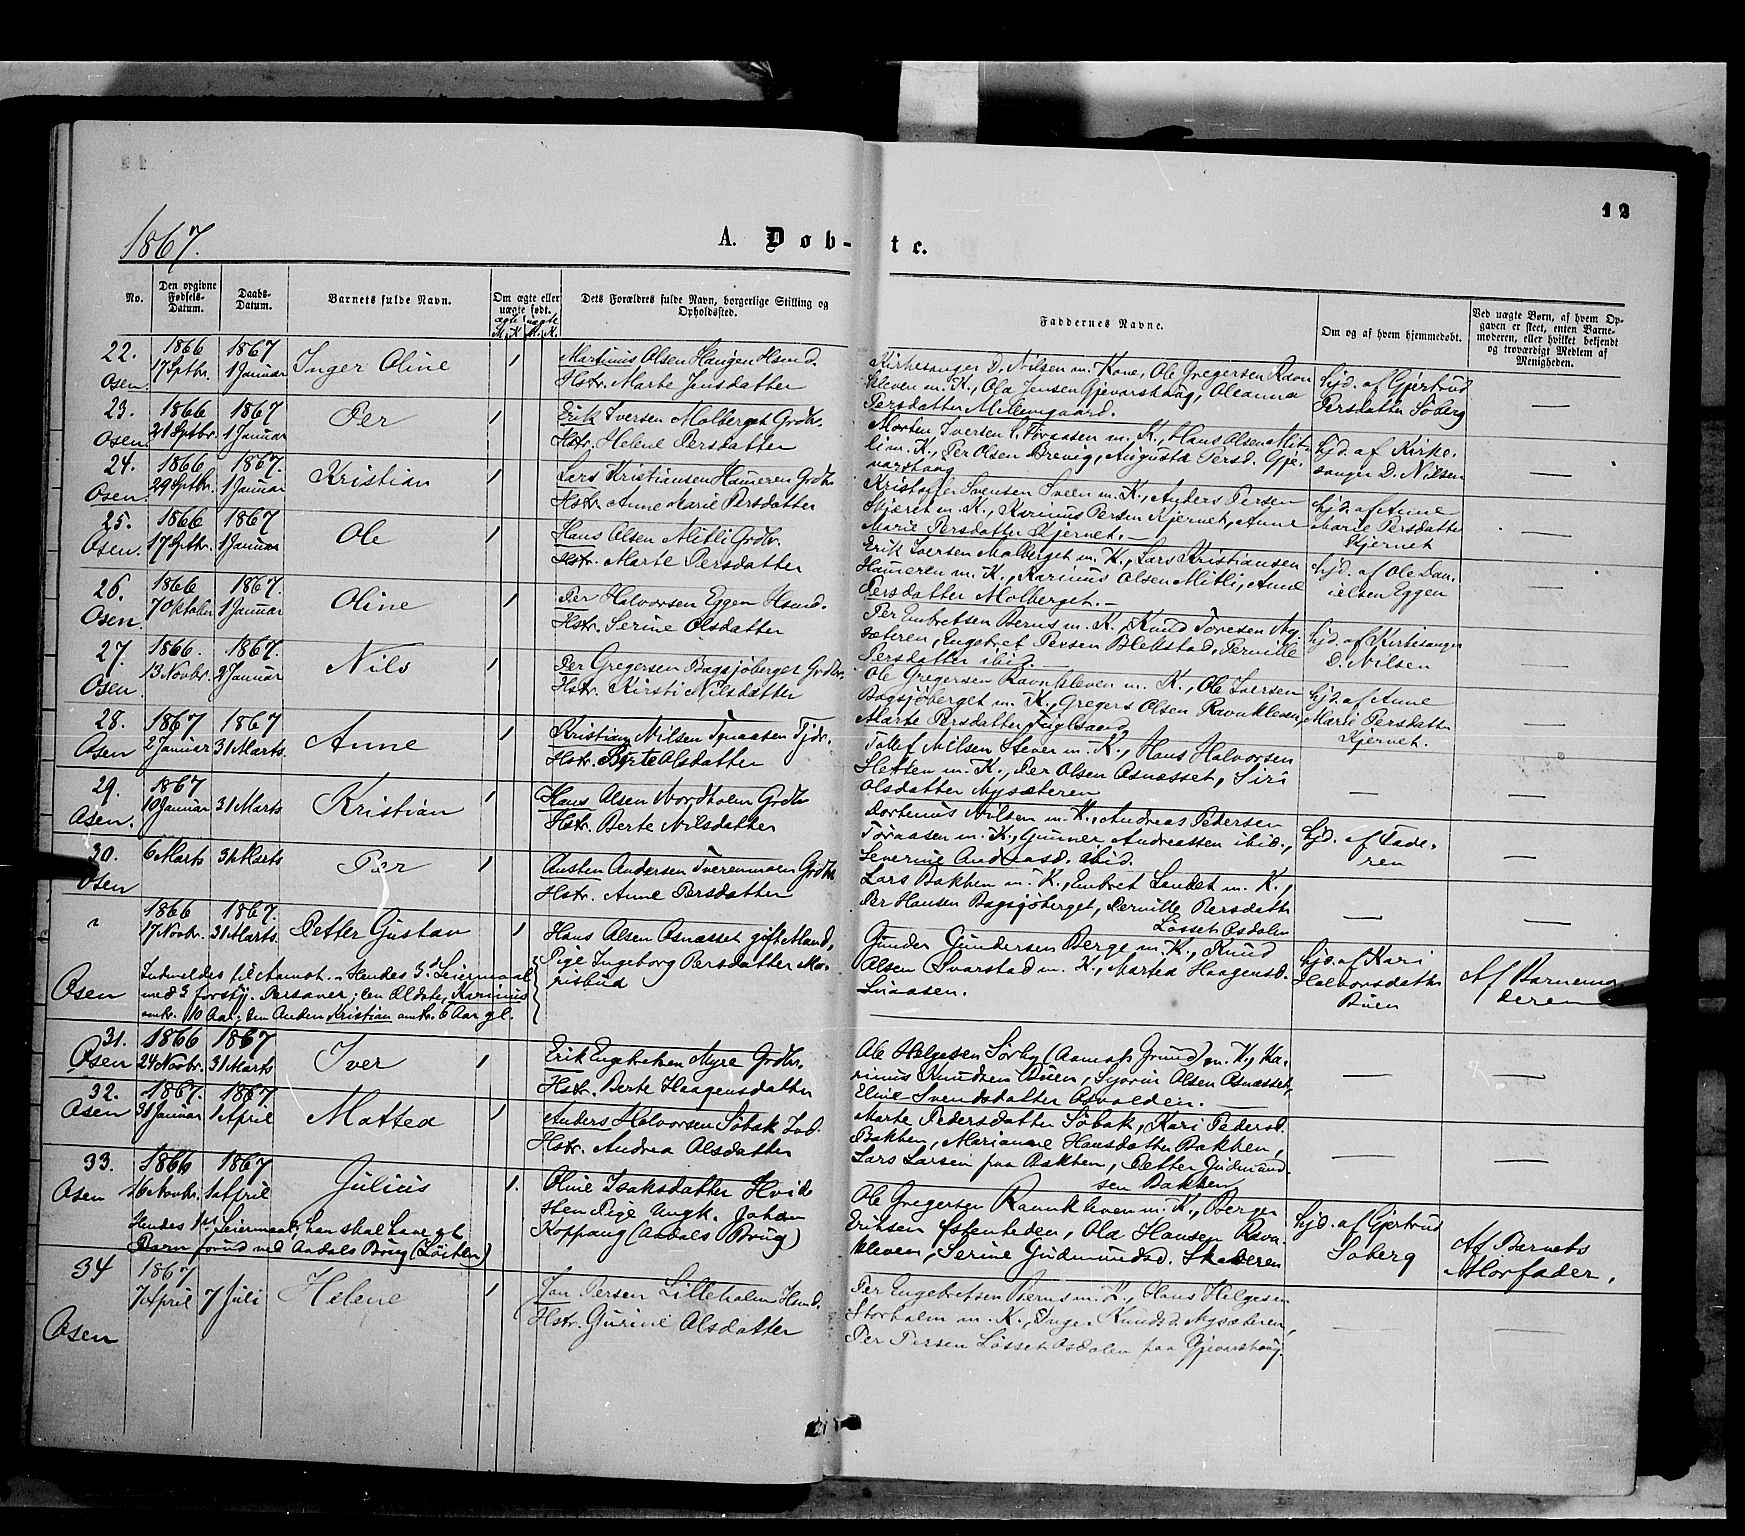 12
1867.
A. Døb-te.
No.
Den opgivne Fødsels-Datum.
Daabs-Datum.
Barnets fulde Navn.
Om ægte eller uægte født.
ægte uægte
M. K. M. K.
Dets Forældres fulde Navn, borgerlige Stilling og Opholdssted.
Faddernes Navne.
Om og af hvem hjemmedøbt.
Ved uægte Børn, af hvem Opgaven er skeet, enten Barnemoderen, eller hvilket bekjendt og troværdigt Medlem af Menigheden.
22. Osen.
1866 17 Sptbr.
1867 1 Januar
Inger Oline
1
Martinus Olsen Haugen Hsmd.
Hstr. Marte Jensdatter
Kirkesanger D. Nilsen m. Kone, Ole Gregersen Ravn
kleven m. K., Ola Jensen Gjevarshaug, Oleanna
Persdatter Mellemgaard.
hjd. af Gjertrud
Persdatter Søberg
—
23. Osen.
1866 21 Sptbr.
1867 1 Januar
Per
1
Erik Iversen Molberget Grdbr.
Hstr. Helene Persdatter
Morten Iversen Tøraasen m. K., Hans Olsen Mit-
li m. K., Per Olsen Brevig, Augusta Persd. Gje-
varshaug
hjd. af Kirke-
sanger D. Nilsen
—
24. Osen.
1866 29 Sptbr.
1867. 1 Januar
Kristian
1
Lars Kristiansen Hameren Grdbr
Hstr. Anne Marie Persdatter
Kristoffer Svensen Sveen m. K., Anders Persen
Skjæret m. K., Karinus Persen Kjernet, Anne
Marie Persdatter Kjernet. —
hjd. af Anne
Marie Persdatter
Kjernet
—
25. Osen.
1866 17 Sptbr.
1867 1 Januar
Ole
1
Hans Olsen Mitli Grdbr.
Hstr. Marte Persdatter
Erik Iversen Molberget m. K., Lars Kristiansen
Hameren m. K., Karinus Olsen Mitli, Anne
Persdatter Molberget. —
hjd. af Ole Dan-
ielsen Eggen
—
26. Osen.
1866 7 Oktober
1867. 1 Januar
Oline
1
Per Halvorsen Eggen Hsmd.
Hstr. Serine Olsdatter
Per Embretsen Berns m. K., Knud Toresen Ny-
sæteren, Engebret Persen Blekstad, Pernille
Persdatter ibid. —
hjd. af Kirkesanger
D. Nilsen
—
27. Osen.
1866. 13 Novbr.
1867. 2 Januar
Nils
1
Per Gregersen Bagsjøberget Grdbr.
Hstr. Kirsti Nilsdatter
Ole Gregersen Ravnkleven m. K., Ole Iversen
Bagsjøberget m. K., Gregers Olsen Ravnkleven,
Marte Persdatter Fuglsang
hjd. af Anne
Marie Persdatter
Kjernet.
—
28. Osen
1867 2 Januar
1867 31 Marts.
Anne
1
Kristian Nilsen Tjdr.
Hstr. Berte Olsdatter
Tollef Nilsen Stener m. K., Hans Halvorsen
Sletten m. K., Per Olsen Osnæsset, Siri
Olsdatter Nysæteren
—
—
29. Osen.
1867 10 Januar
31 Marts
Kristian
1
Hans Olsen Nordholm Grdbr
Hstr. Berte Nilsdatter
Dortenus Nilsen m. K., Andreas Pedersen
Tøraasen m. K., Gunner Andreassen ibid.,
Severine Andreasd. ibid.
hjd. af Fade-
ren
—
30. Osen
6 Marts
31 Marts
Per
1
Austen Andersen Tverenmoen Grdbr.
Hstr. Anne Persdatter
Lars Bakken m. K., Embret Lendet m. K.,
Per Hansen Bagsjøberget, Pernille Persdattr
Løsset Osdalen
—
—
Osen
1866 17 Novbr.
1867. 31 Marts.
Petter Gustav
1
Hans Olsen Osnæsset gift Mand,
Pige Ingeborg Persdatter Mo-
risbua
Indmeldes til Aamot. Hendes 3de Leiermaal
med 3 forskj. Personer; den Ældste, Karinus
omkr. 10 Aar, den Anden Kristian omkr. 6 Aar gl.
Gunder Gundersen Berge m. K., Knud
Olsen Svarstad m. K., Martea Haagensd.
Livaasen.
hjd. af Kari
Halvorsdatter
Buen
Af Barnemo-
deren
31. Osen
1866 24 Novbr.
1867 31 Marts
Iver
1
Erik Engebretsen Myre Grdbr.
Hstr. Berte Haagensdatter
Ole Helgesen Sørby (Aamots Grund) m. K., Ka-
rinus Knudsen Buen, Syver Olsen Osnæsset,
Eline Svendsdatter Osvolden. —
—
—
32. Osen
1867. 31 Januar
1867 1 April
Mattea
1
Anders Halvorsen Søbak Ind.
Hstr. Andrea Olsdatter
Marte Pedersdatter Søbak, Kari Pedersd.
Bakken, Marianne Hansdatter Bakken,
Lars Larsen paa Bakken, Petter Gudmund-
sen Bakken
—
—
33. Osen
1866 16 Novbr.
1867 1 April
Julius
1.
Oline Isaksdatter Hvid-
sten Pige Ungk. Johan
Koppang (Aadals Brug)
Hendes 1ste Leiermaal, han skal have et
Barn forud ved Aadals Brug (Løiten)
Ole Gregersen Ravnkleven m. K., Berger
Eriksen Estenheden, Ola Hansen Ravn-
kleven, Serine Gudmundsd. Skaderen
hjd. af Gjertrud
Søberg
Af Barnets
Morfader.
34 Osen
1867 7 April
7 Juli
Helene
1
Jon Persen Lilleholm Hsmd.
Hstr. Gurine Olsdatter
Per Engebretsen Berns m. K., Hans Helgesen
Storholm m. K., Inger Knudsd. Nysæteren,
Per Persen Løsset Osdalen paa Gjevarshaug.
—
—